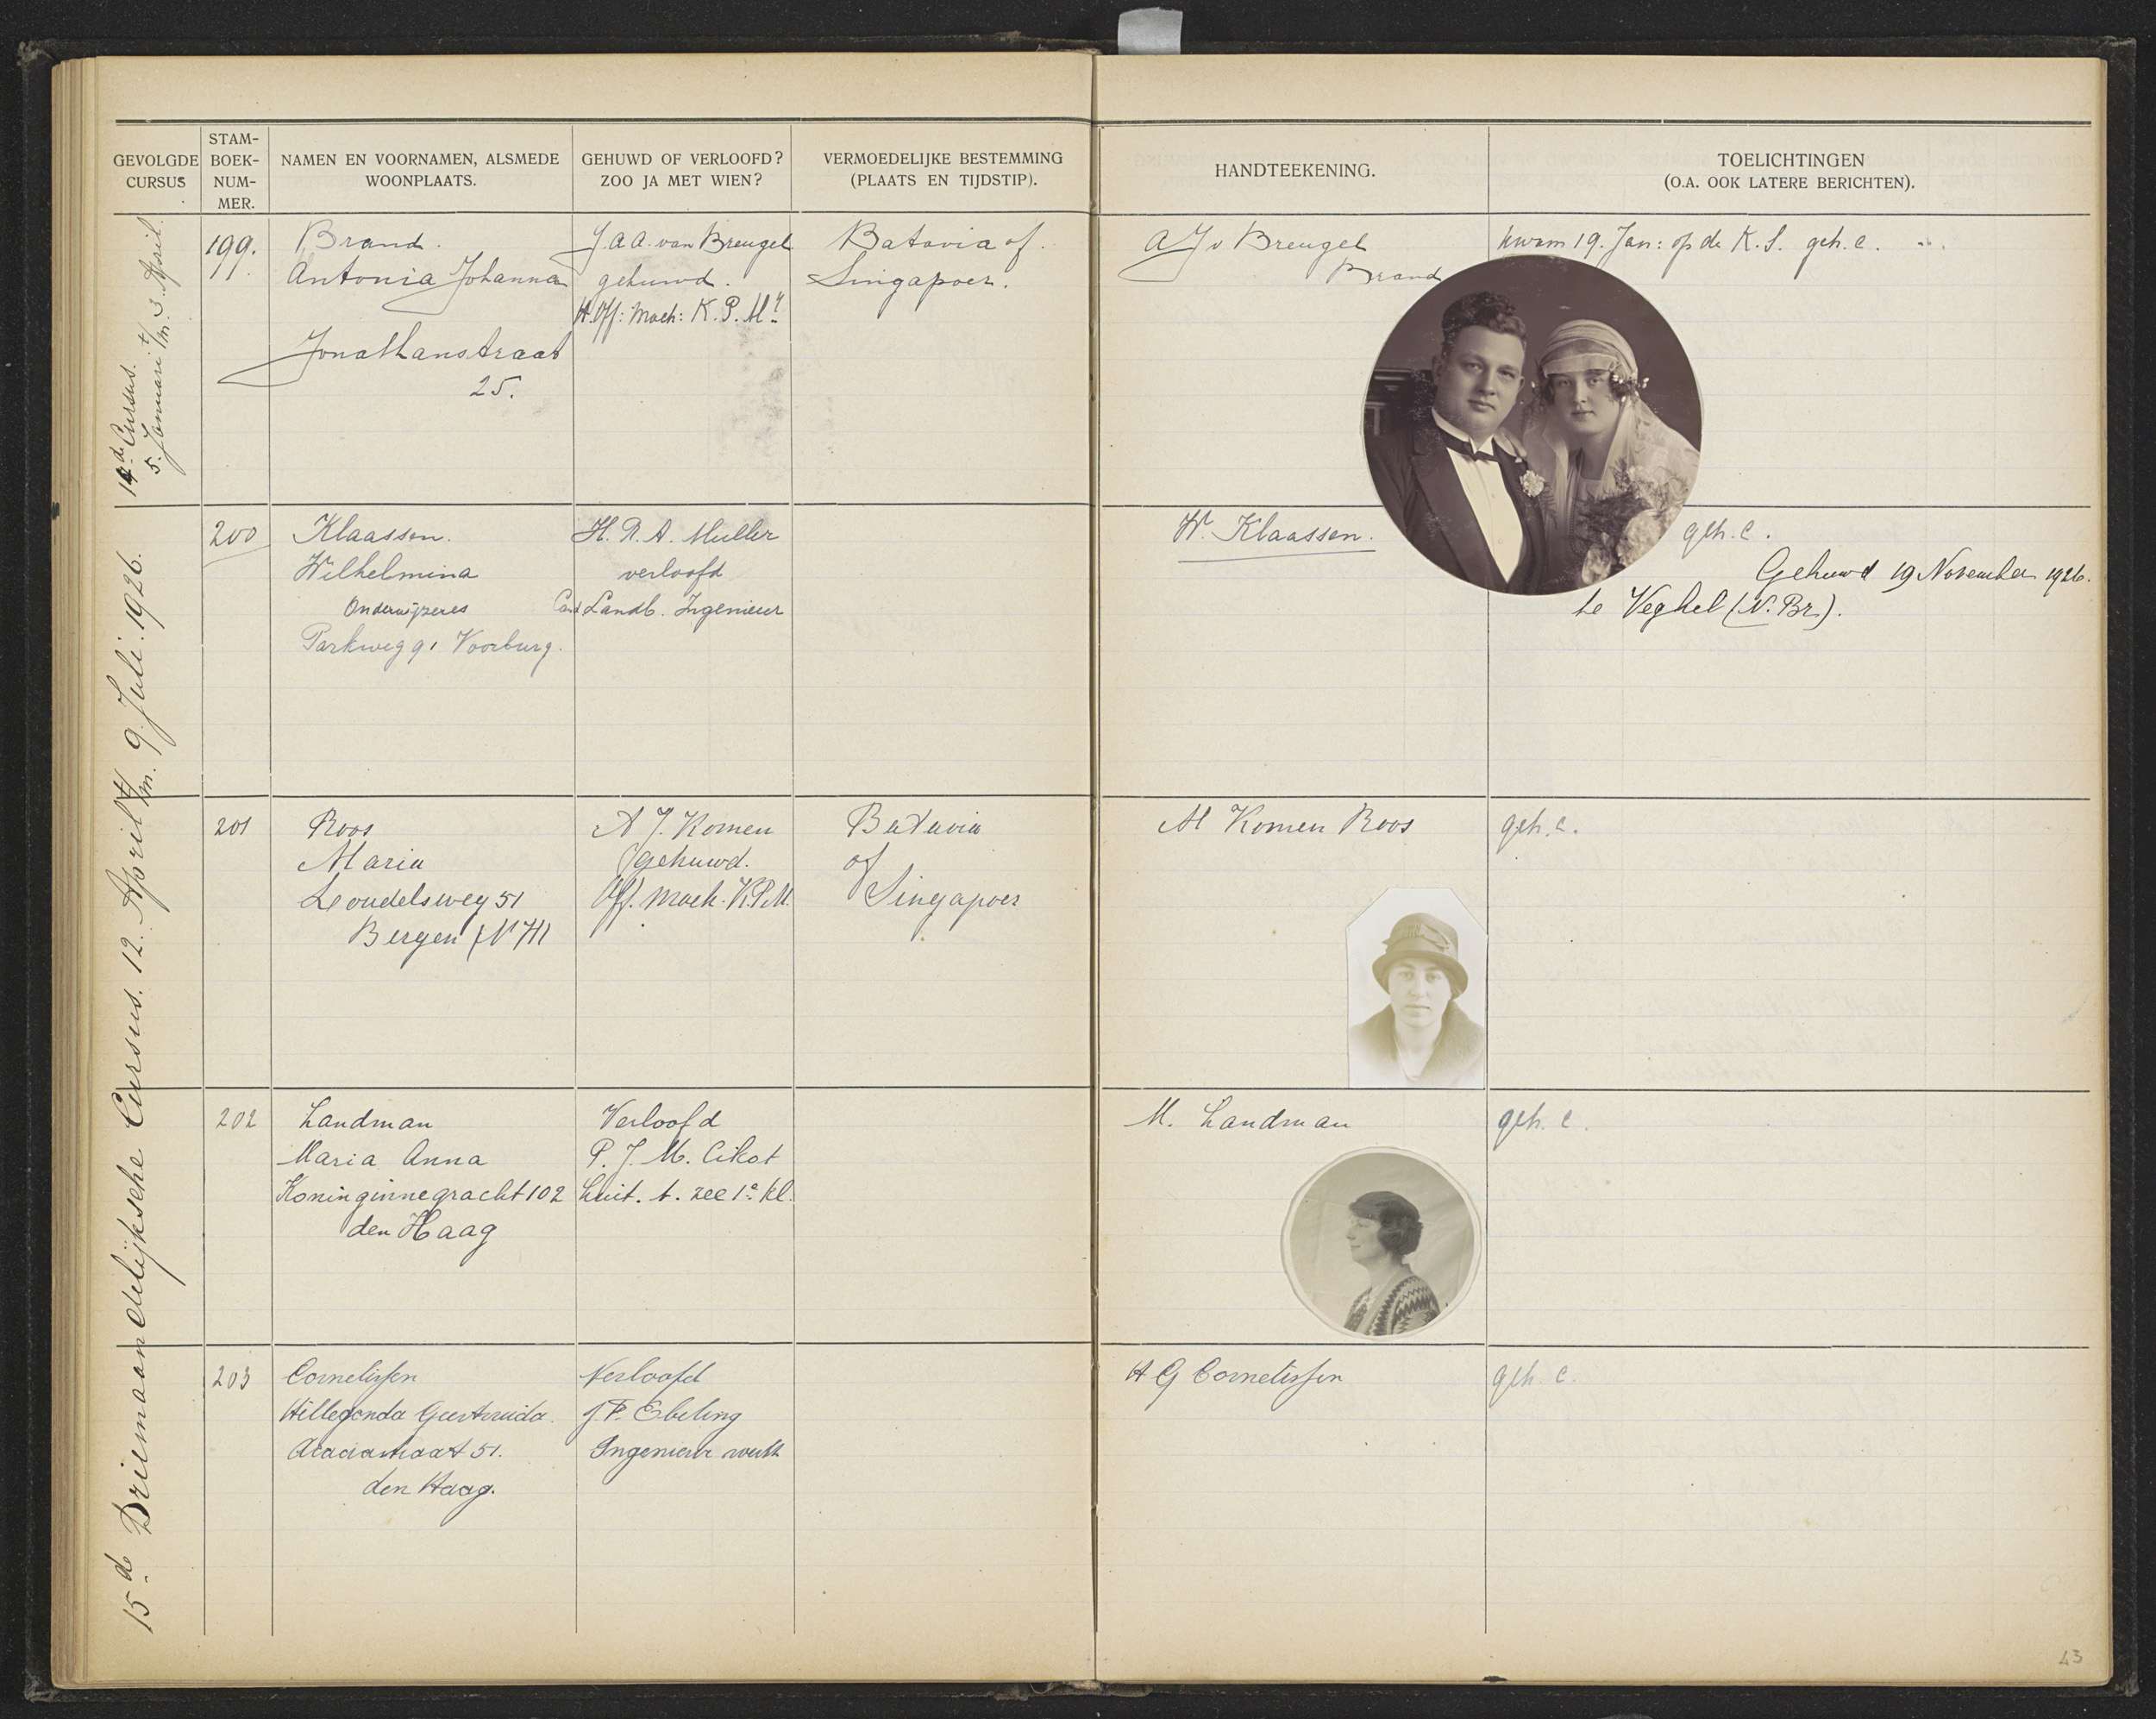 GEVOLGDE
CURSUS
STAM-
BOEK-
NUM-
MER.
NAMEN EN VOORNAMEN, ALSMEDE
WOONPLAATS.
GEHUWD OF VERLOOFD?
ZOO JA MET WIEN?
VERMOEDELIJKE BESTEMMING
(PLAATS EN TIJDSTIP).
HANDTEEKENING.
TOELICHTINGEN
(O.A. OOK LATERE BERICHTEN).
14de Cursus.
5. Januari t/m. 3. April.
199.
Brand.
Antonia Johanna
Jonathanstraat
25.
J.A.A. van Breugel
gehuwd.
Off: Mach: K.P.Mij
Batavia of
Singapoer.
A J v Breugel
Brand
kwam 19. Jan: op de K.S. geh. c.
15de Driemaandelijksche Cursus. 12. April t/m. 9. Juli. 1926.
200
Klaassen.
Wilhelmina
Onderwijzeres
Parkweg 91 Voorburg.
H. R. A. Muller
verloofd
Cand Landb. Ingenieur
W. Klaassen.
geh. c.
Gehuwd 19 November 1926.
te Veghel (N. Br.).
201
Roos
Maria
Loudelsweg 51
Bergen (N H)
A J. Komen
gehuwd.
Off. Mach. K.P.M.
Batavia
of
Singapoer
M Komen Roos
geh. c.
202
Landman
Maria Anna
Koninginnegracht 102
den Haag
Verloofd
P. J. M. Cikot
Luit. t. zee 1e kl.
M. Landman
geh. c.
203
Cornelissen
Hillegonda Geertruida.
Acaciastraat 51.
den Haag.
Verloofd
J F. Ebeling
Ingenieur
H G Cornelissen
geh. c.
43